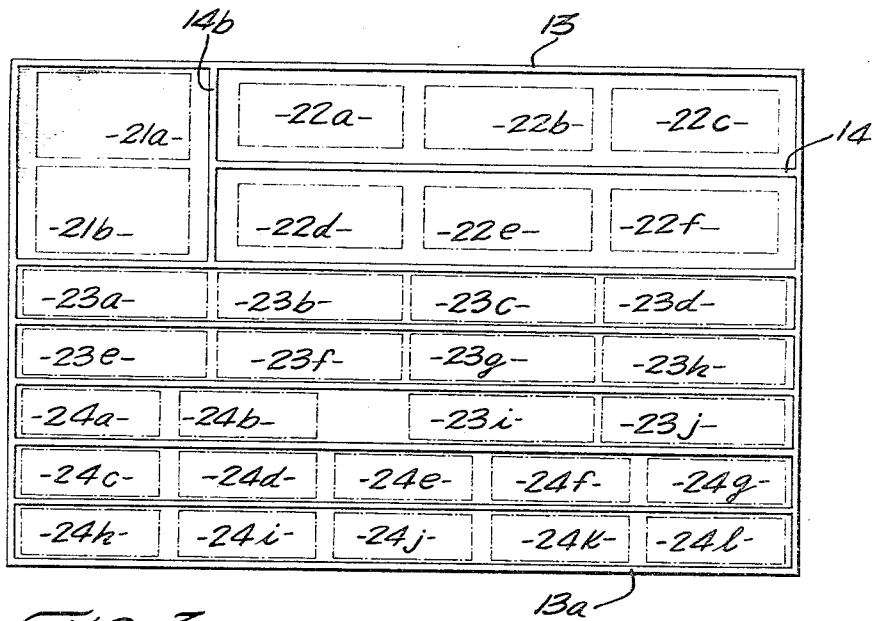 14b 13
-21a- -22a- -22b- -22c-
14
-21b- -22d- -22e- -22f-
-23a- -23b- -23c- -23d-
-23e- -23f- -23g- -23h-
-24a- -24b- -23i- -23j-
-24c- -24d- -24e- -24f- -24g-
-24h- -24i- -24j- -24k- -24l-
13a